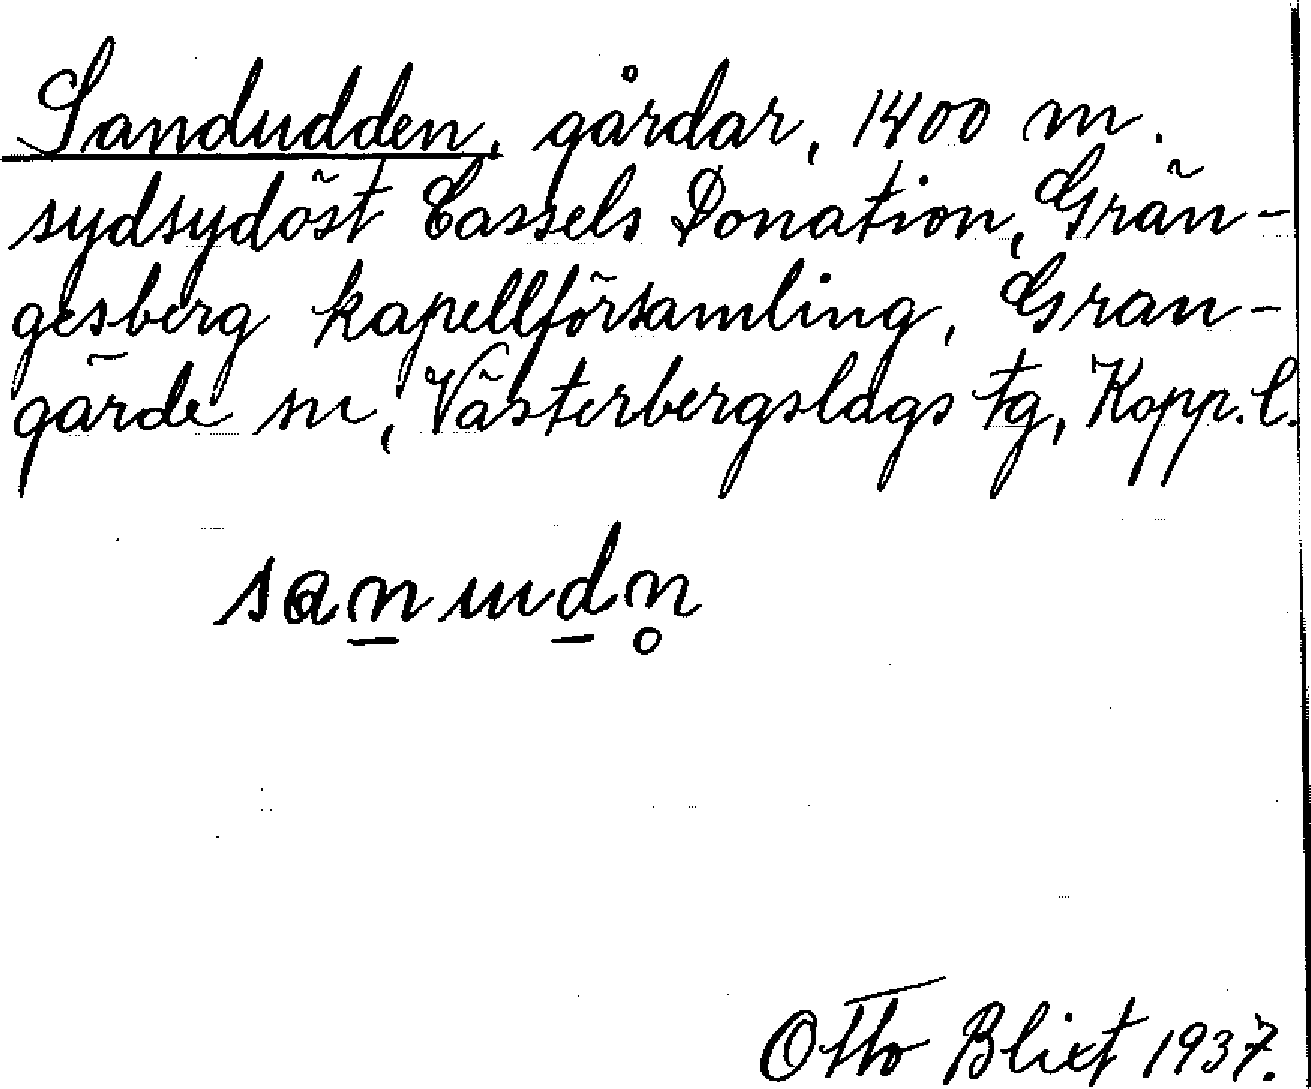 Sandudden, gårdar, 1400 m.
sydsydöst Cassels Donation, Grän-
gesberg kapellförsamling, Gran-
gärde sn, Västerbergslags tg, Kopp. l.
san̲ud̲n̥
Otto Blixt 1937.